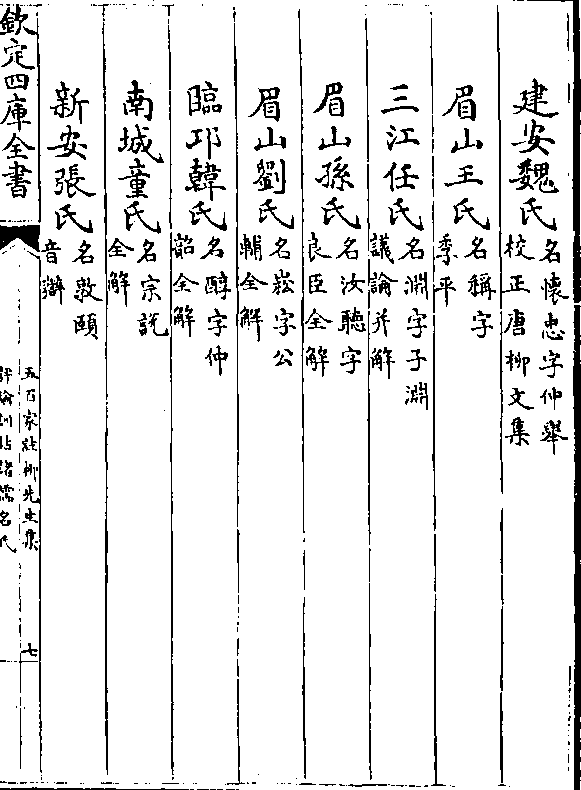 建安魏氏名懷忠字仲舉校正唐柳文集
眉山王氏名稱字季平
三江任氏名淵字子淵議論并解
眉山孫氏名汝聽字良臣全解
眉山劉氏名崧字公輔全解
臨邛韓氏名醇字仲韶全解
南城童氏名宗說全解
新安張氏名敦頤音辯
欽定四庫全書
五百家註柳先生集
評論訓詁諸儒名氏
七